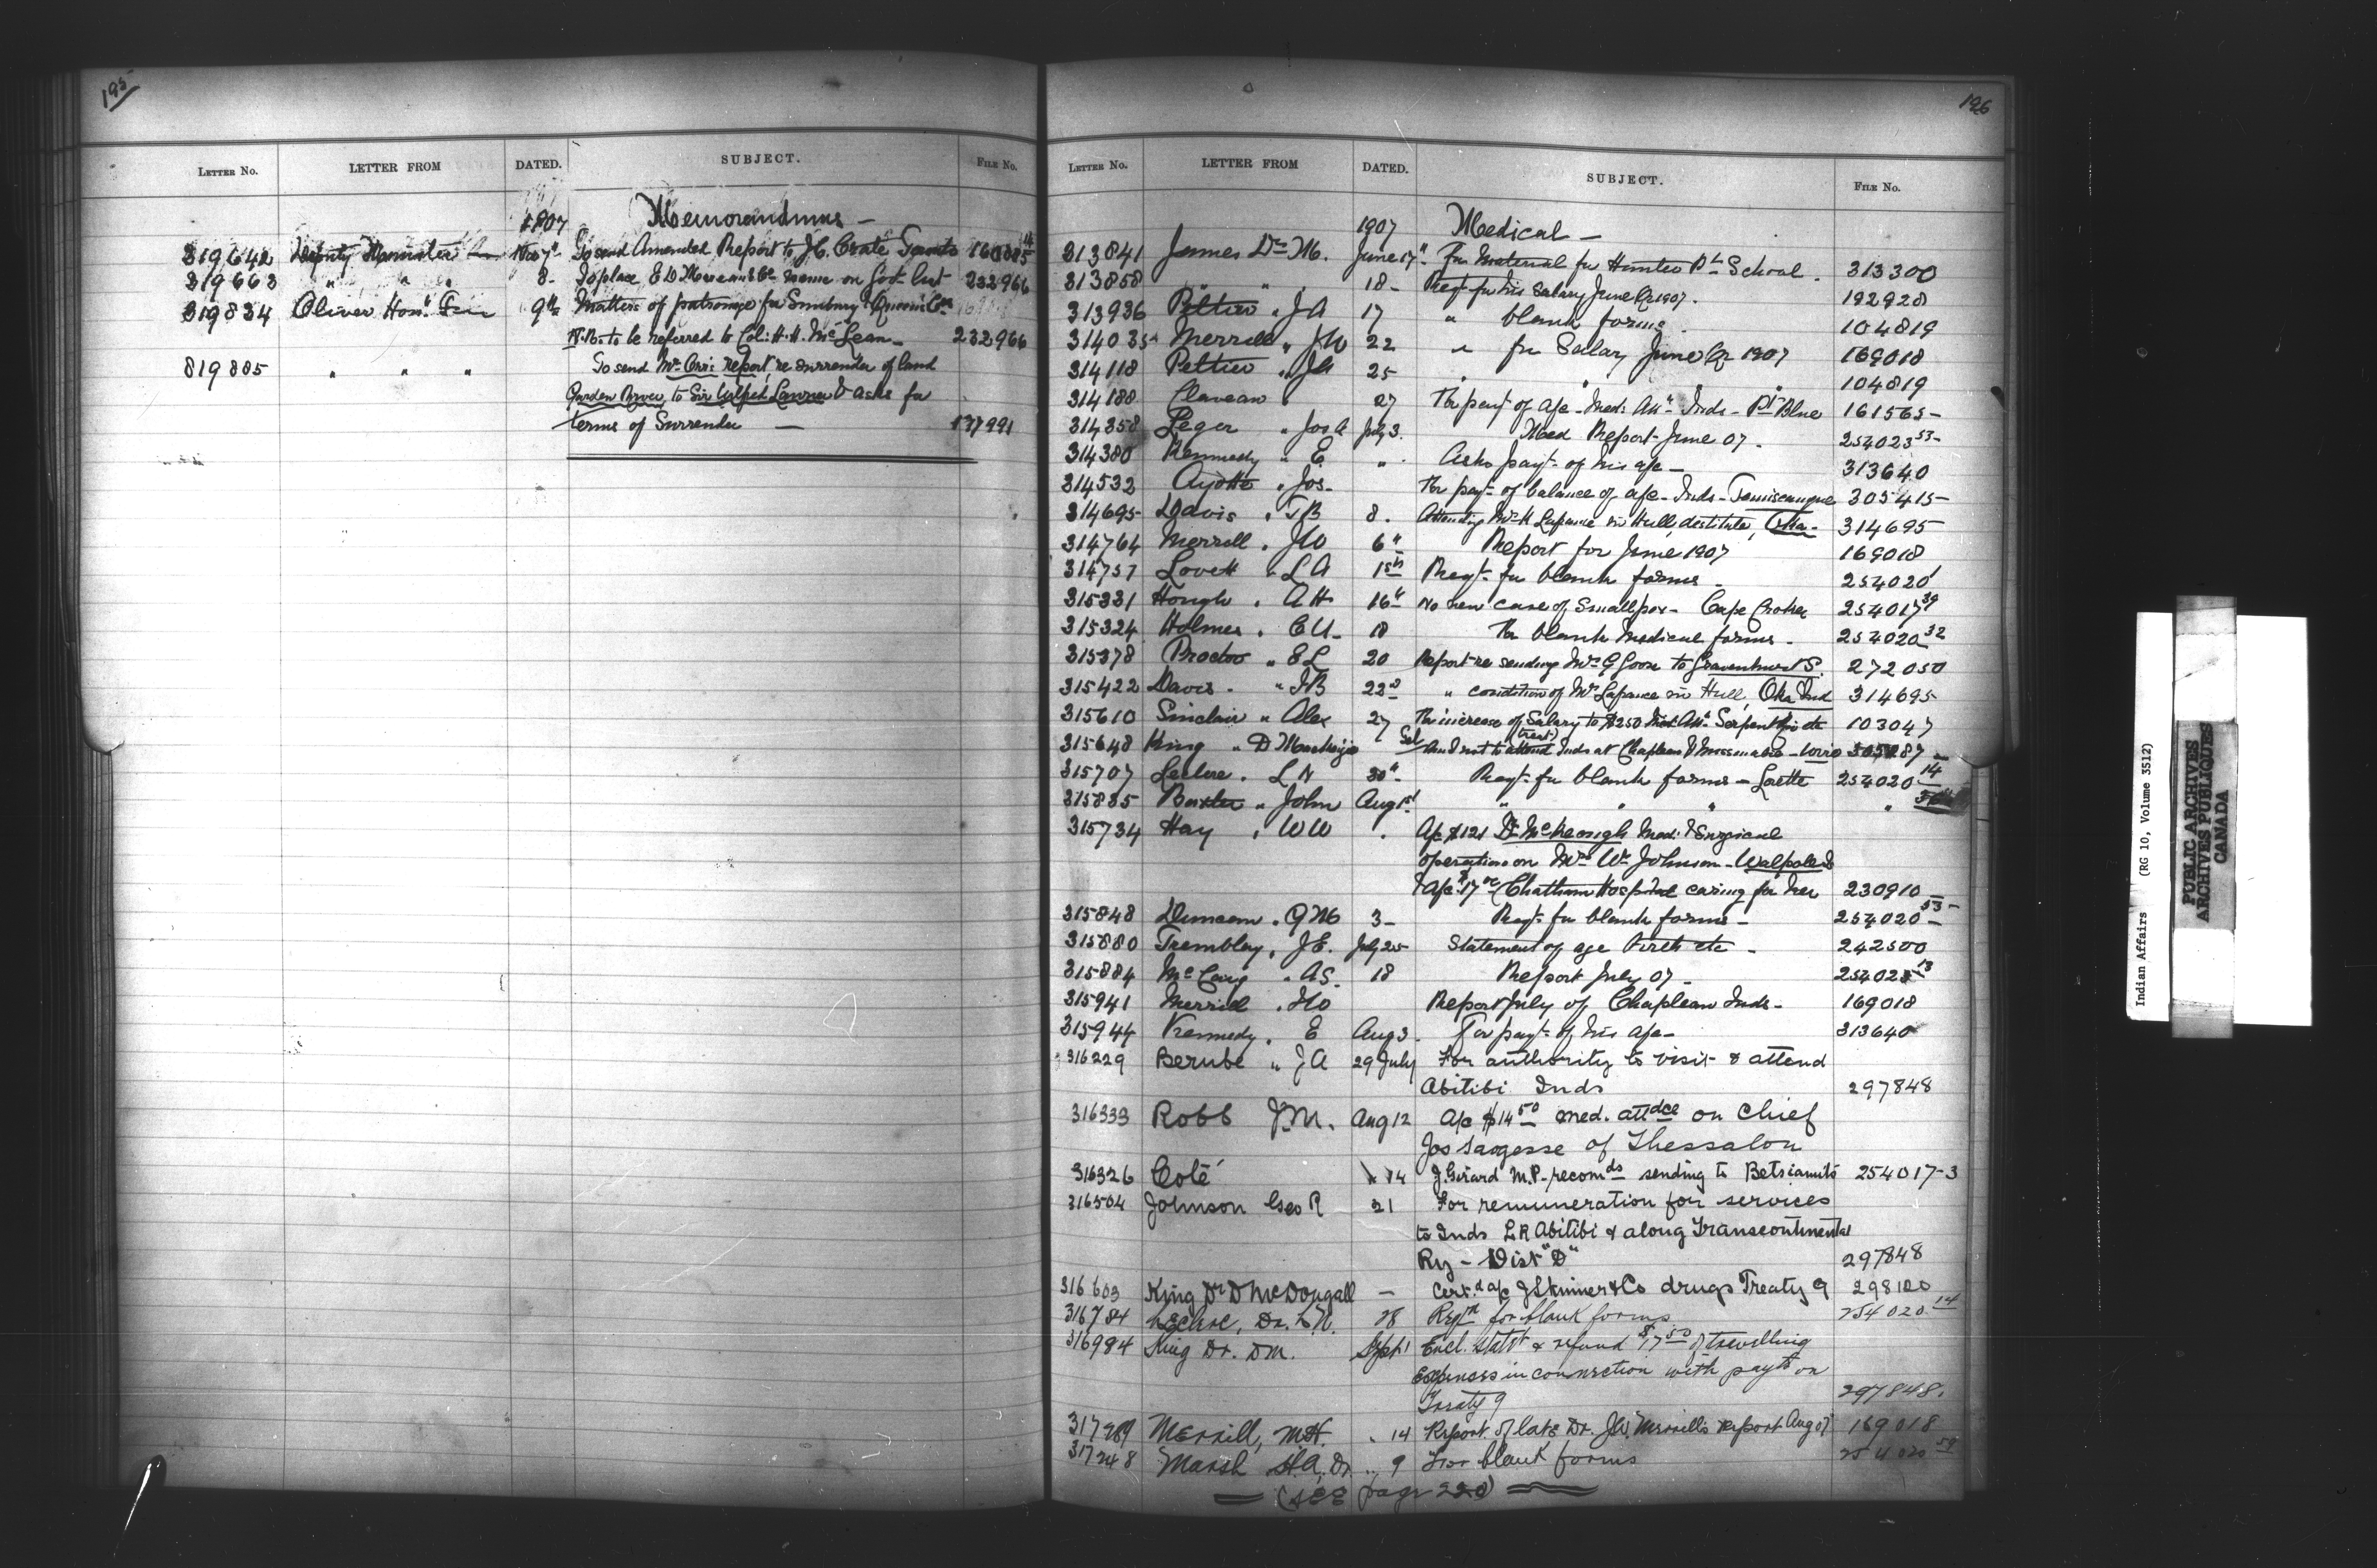 195
LETTER NO. LETTER FROM DATED. SUBJECT. FILE No.
1907 Memorandums —
319642 Deputy Minister Nov 7th To send Amended Report to J.C. 160085 14
319663 " " " 8 - To place E D & Co. name on Govt list 232966
319834 Oliver Hon. 9th Matters of patronage for Sunbury & Queens Cos
N.B. to be referred to Col: H.H. McLean - 232966
319885 " " " To send Mr. Orr's report re surrender of land
Garden River, to Sir Wilfrid Laurier & asks for
terms of Surrender — 137991
196
LETTER NO. LETTER FROM DATED. SUBJECT. FILE No.
1907 Medical —
313841 James Dr. M. June 17" For Material for School. 313300
313858 " " 18 - Reqt for his Salary June Qr 1907. 192928
313936 Peltier " J A 17 " blank forms. 104819
314035 Merrill " J W 22 " for Salary June Qr 1907 169018
314118 Peltier " JA 25 " " 104819
314188 Claveau " 27 For payt of a/c - Med: Att. Inds - Pt Blue 161565 -
314358 Leger " Jos A July 3. Med Report - June 07. 254023 53 -
314380 Kennedy " E " Asks payt of his a/c - 313640
314532 Ayotte " Jos - For payt of balance of a/c - Inds - Temiscamingue 305415 -
314695 Davis " T B 8. Attending Mrs Lafrance in Hull, destitute, Oka - 314695
314764 Merrill " J W 6" Report for June 1907 169018
314757 Lovett " L A 1st Reqt for blank forms - 254020 1
315331 Hough " A H 16" No new case of Smallpox - Cape Croker 254017 39
315324 Holmes " C U - 18 For blank medical forms - 254020 32
315378 Proctor " E L 20 Report re sending Mrs G Goose to Gravenhurst S. 272050
315422 Davis - " T B 22d " condition of Mrs Lafrance in Hull, Oka Ind 314695
315610 Sinclair " Alex 27 For increase of Salary to $250 Med. Att. Serpent Riv etc 103047
315648 King " D Mackenzie and not to attend (treat) Inds at Chapleau & Missanabie
315707 Leclerc " L N 30" Reqt for blank forms - Lorette 254020 14
315835 Baxter " John Aug 1st " " " "
315734 Hay " W W " A/c $121 Dr McKeough Med. & Surgical
operation on Mrs Wm Johnson - Walpole I
& a/c $17 00 (Chatham Hospital caring for her 230910
315848 Duncan " G M 3 - Reqt for blank forms - 254020 53 -
315880 Tremblay, J E. July 25 Statement of age birth etc - 242500
315884 McCaig " A S. 18 Report July 07 - 254023 13
315941 Merrill " J W Report July of Chapleau Inds - 169018
315944 Kennedy. E Aug 3. For payt of his a/c - 313640
316229 Berube " J A 29 July For authority to visit & attend
Abitibi Inds 297848
316333 Robb J. M. Aug 12 A/c $14 50 med. attdce on Chief
Jos Saugesse of Thessalon
316326 Coté " 14 J. Girard M.P. recomds sending to Betsiamits 254017-3
316504 Johnson Geo R 21 For remuneration for services
to Inds L R Abitibi & along Transcontinental
Ry - Dist "D" 297848
316603 King Dr D McDougall — Certd a/c J Skinner & Co drugs Treaty 9 298120
316784 Leclerc, Dr. L N. 28 Reqn for blank forms 254020 14
316984 King Dr. D M. Sept 1 Encl. statt & refund $17 50 of travelling
Expenses in connection with payts on
Treaty 9 297848.
317289 Merrill, M H. " 14 Report of late Dr. J W. Merrill's report Aug 07 169018
317248 Marsh H. A, Dr " 9 For blank forms 254020 59
(see page 220)
Indian Affairs (RG 10, Volume 3512)
PUBLIC ARCHIVES
ARCHIVES PUBLIQUES
CANADA